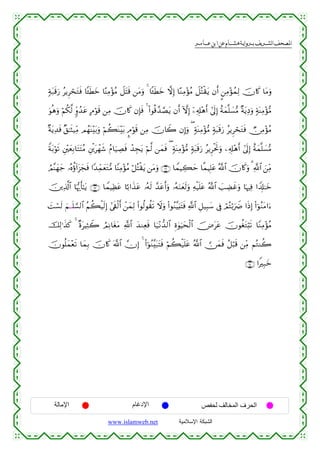 المصحف الشريف برواية هشام عن ابن عامر
وَمَا كَانَ لِمُؤْمِنٍ أَن يَقْتُلَ مُؤْمِنًا إِلَّا خَطَـًٔا ۚ وَمَن قَتَلَ مُؤْمِنًا خَطَـًٔا فَتَحْرِيرُ رَقَبَةٍ
مُّؤْمِنَةٍ وَدِيَةٌ مُّسَلَّمَةٌ إِلَىٰٓ أَهْلِهِۦٓ إِلَّآ أَن يَصَّدَّقُوا۟ ۚ فَإِن كَانَ مِن قَوْمٍ عَدُوٍّ لَّكُمْ وَهُوَ
مُؤْمِنٌ فَتَحْرِيرُ رَقَبَةٍ مُّؤْمِنَةٍ ۖ وَإِن كَانَ مِن قَوْمٍۭ بَيْنَكُمْ وَبَيْنَهُم مِّيثَـٰقٌ فَدِيَةٌ
مُّسَلَّمَةٌ إِلَىٰٓ أَهْلِهِۦ وَتَحْرِيرُ رَقَبَةٍ مُّؤْمِنَةٍ ۖ فَمَن لَّمْ يَجِدْ فَصِيَامُ شَهْرَيْنِ مُتَتَابِعَيْنِ تَوْبَةً
مِّنَ ٱللَّهِ ۗ وَكَانَ ٱللَّهُ عَلِيمًا حَكِيمًا وَمَن يَقْتُلْ مُؤْمِنًا مُّتَعَمِّدًا فَجَزَآؤُهُۥ جَهَنَّمُ
خَـٰلِدًا فِيهَا وَغَضِبَ ٱللَّهُ عَلَيْهِ وَلَعَنَهُۥ وَأَعَدَّ لَهُۥ عَذَابًا عَظِيمًا يَـٰٓأَيُّهَا ٱلَّذِينَ
ءَامَنُوٓا۟ إِذَا ضَرَبْتُمْ فِى سَبِيلِ ٱللَّهِ فَتَبَيَّنُوا۟ وَلَا تَقُولُوا۟ لِمَنْ أَلْقَىٰٓ إِلَيْكُمُ ٱلسَّلَمَ لَسْتَ
مُؤْمِنًا تَبْتَغُونَ عَرَضَ ٱلْحَيَوٰةِ ٱلدُّنْيَا فَعِندَ ٱللَّهِ مَغَانِمُ كَثِيرَةٌ ۚ كَذَٰلِكَ
كُنتُم مِّن قَبْلُ فَمَنَّ ٱللَّهُ عَلَيْكُمْ فَتَبَيَّنُوٓا۟ ۚ إِنَّ ٱللَّهَ كَانَ بِمَا تَعْمَلُونَ
خَبِيرًا
الحرف المخالف لحفص الإدغام الإمالة
الشبكة الإسلامية www.islamweb.net